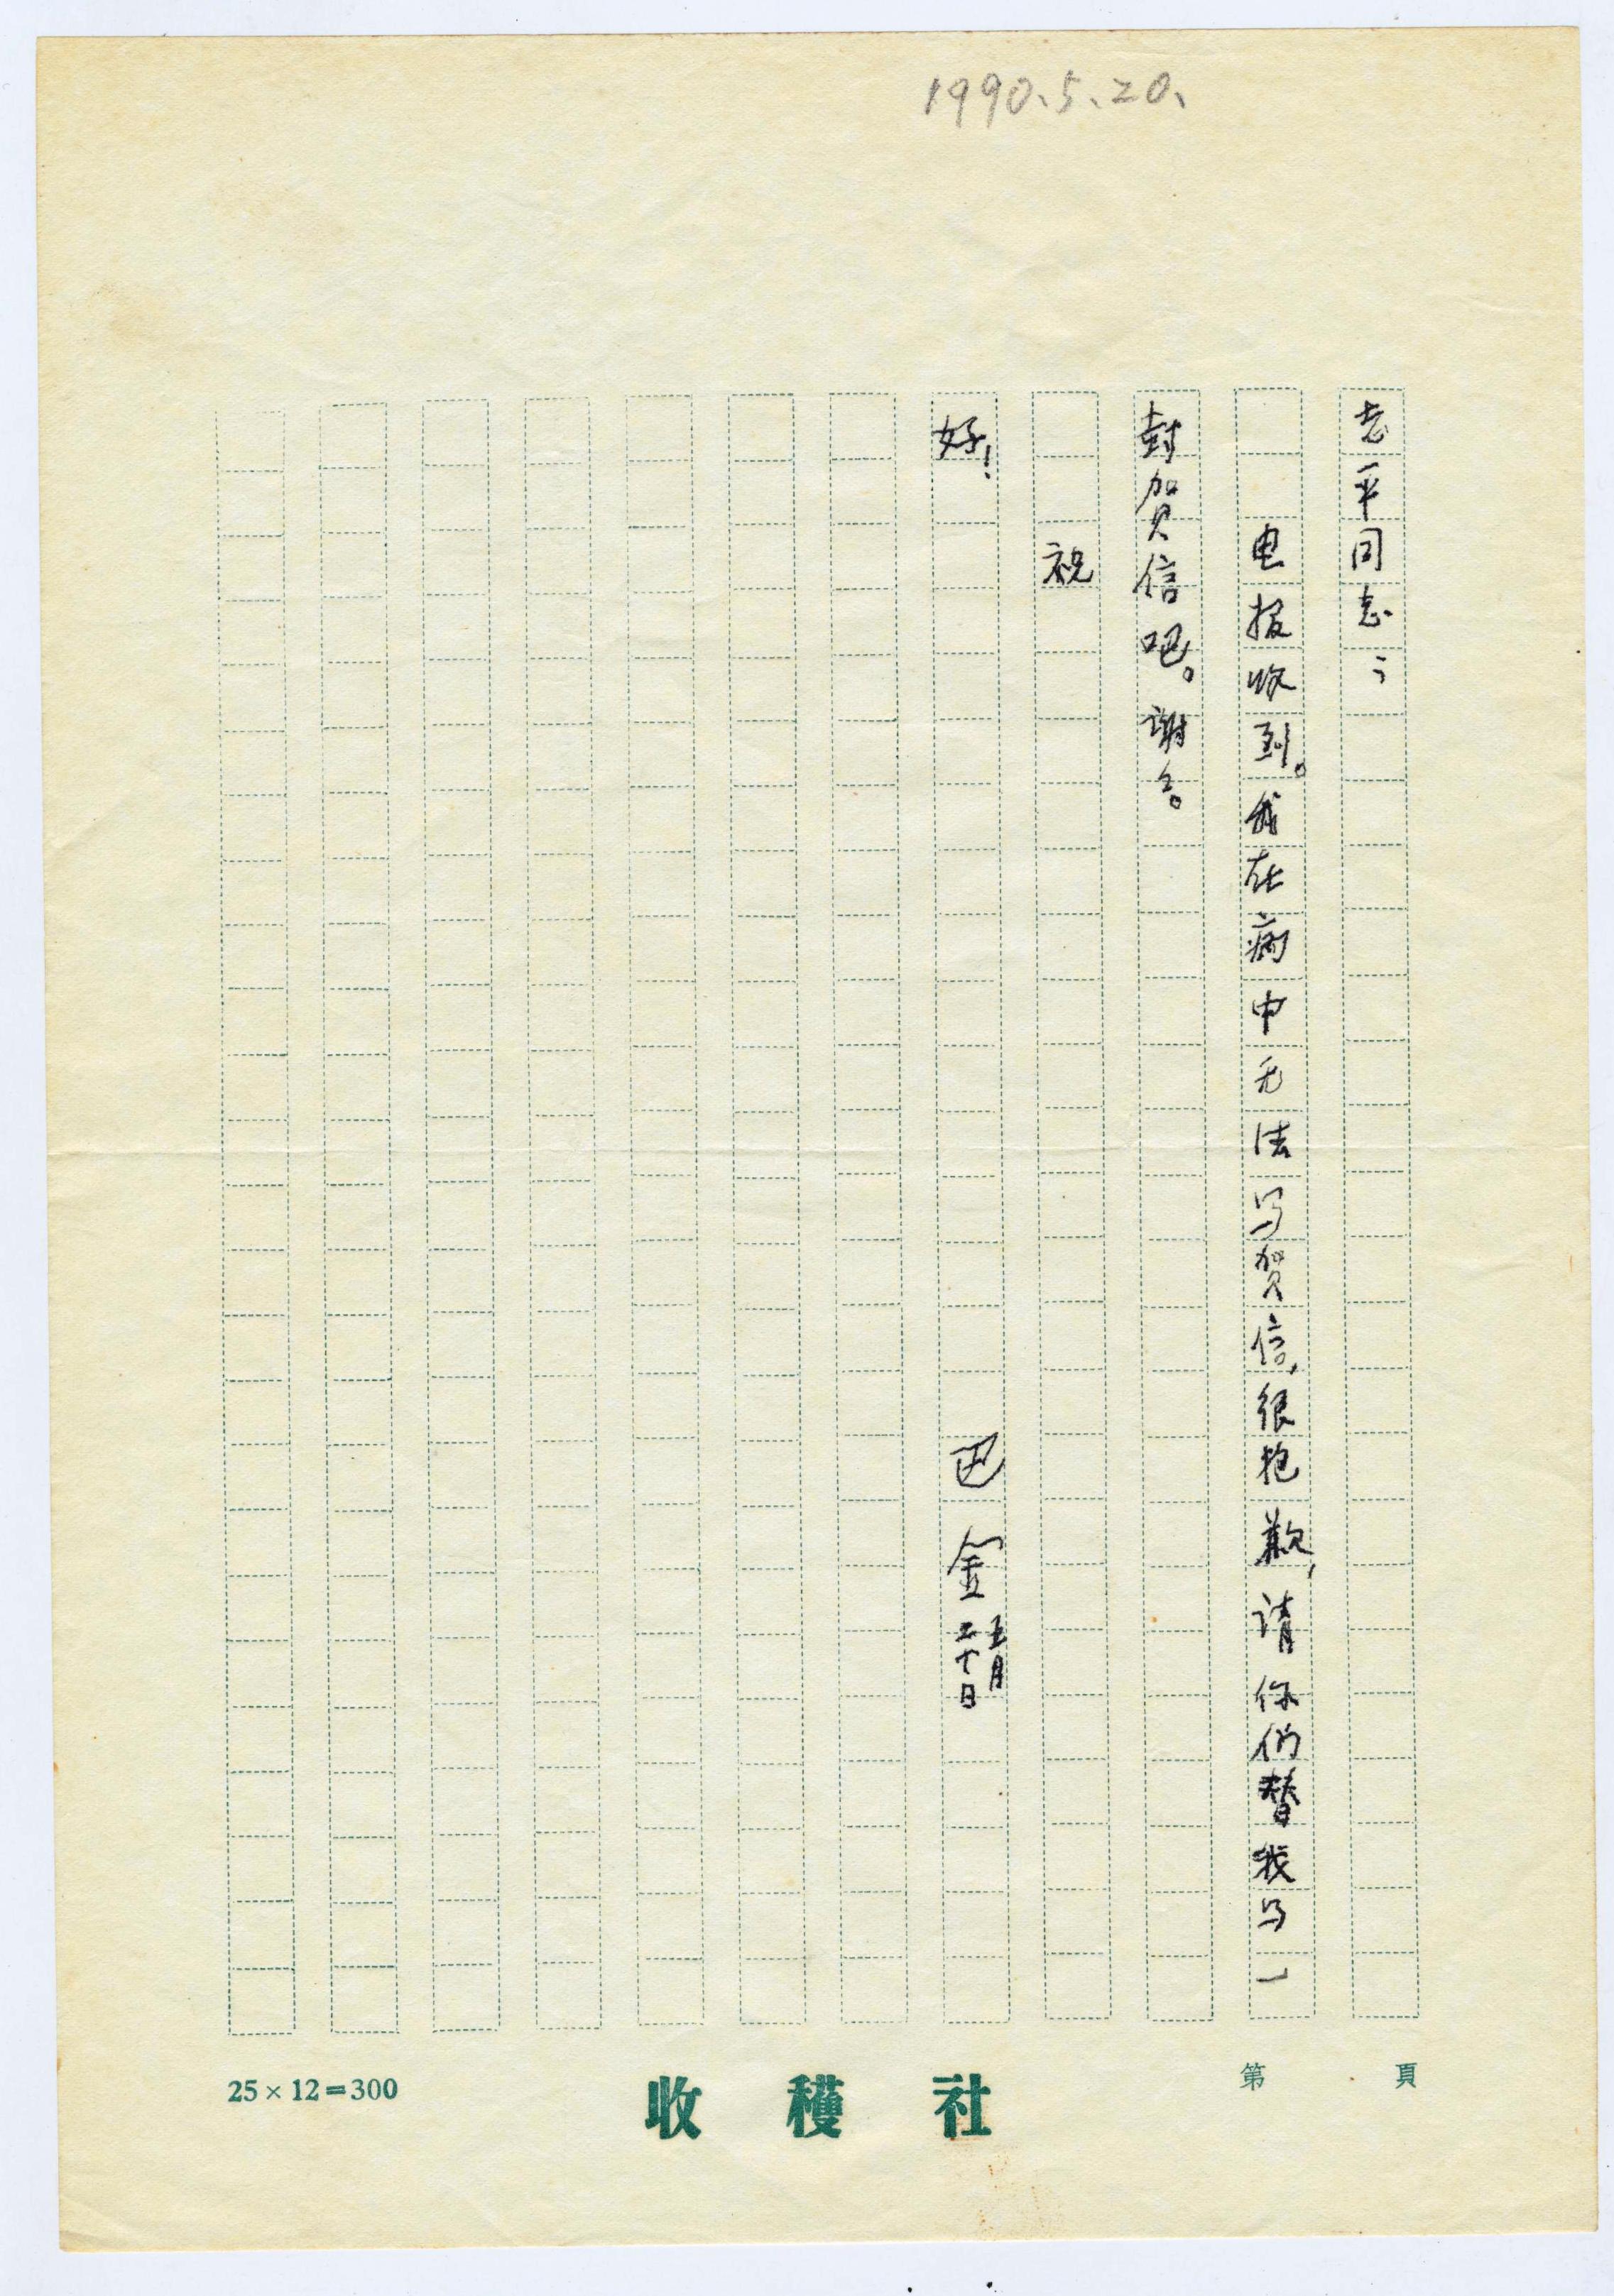 1990、5、20、
志平同志：
电报收到。我在病中无法写贺信，很抱歉，请你们替我写一
封贺信吧。谢々。
祝
好！
巴金
五月
二十日
第 頁
收穫社
25×12=300